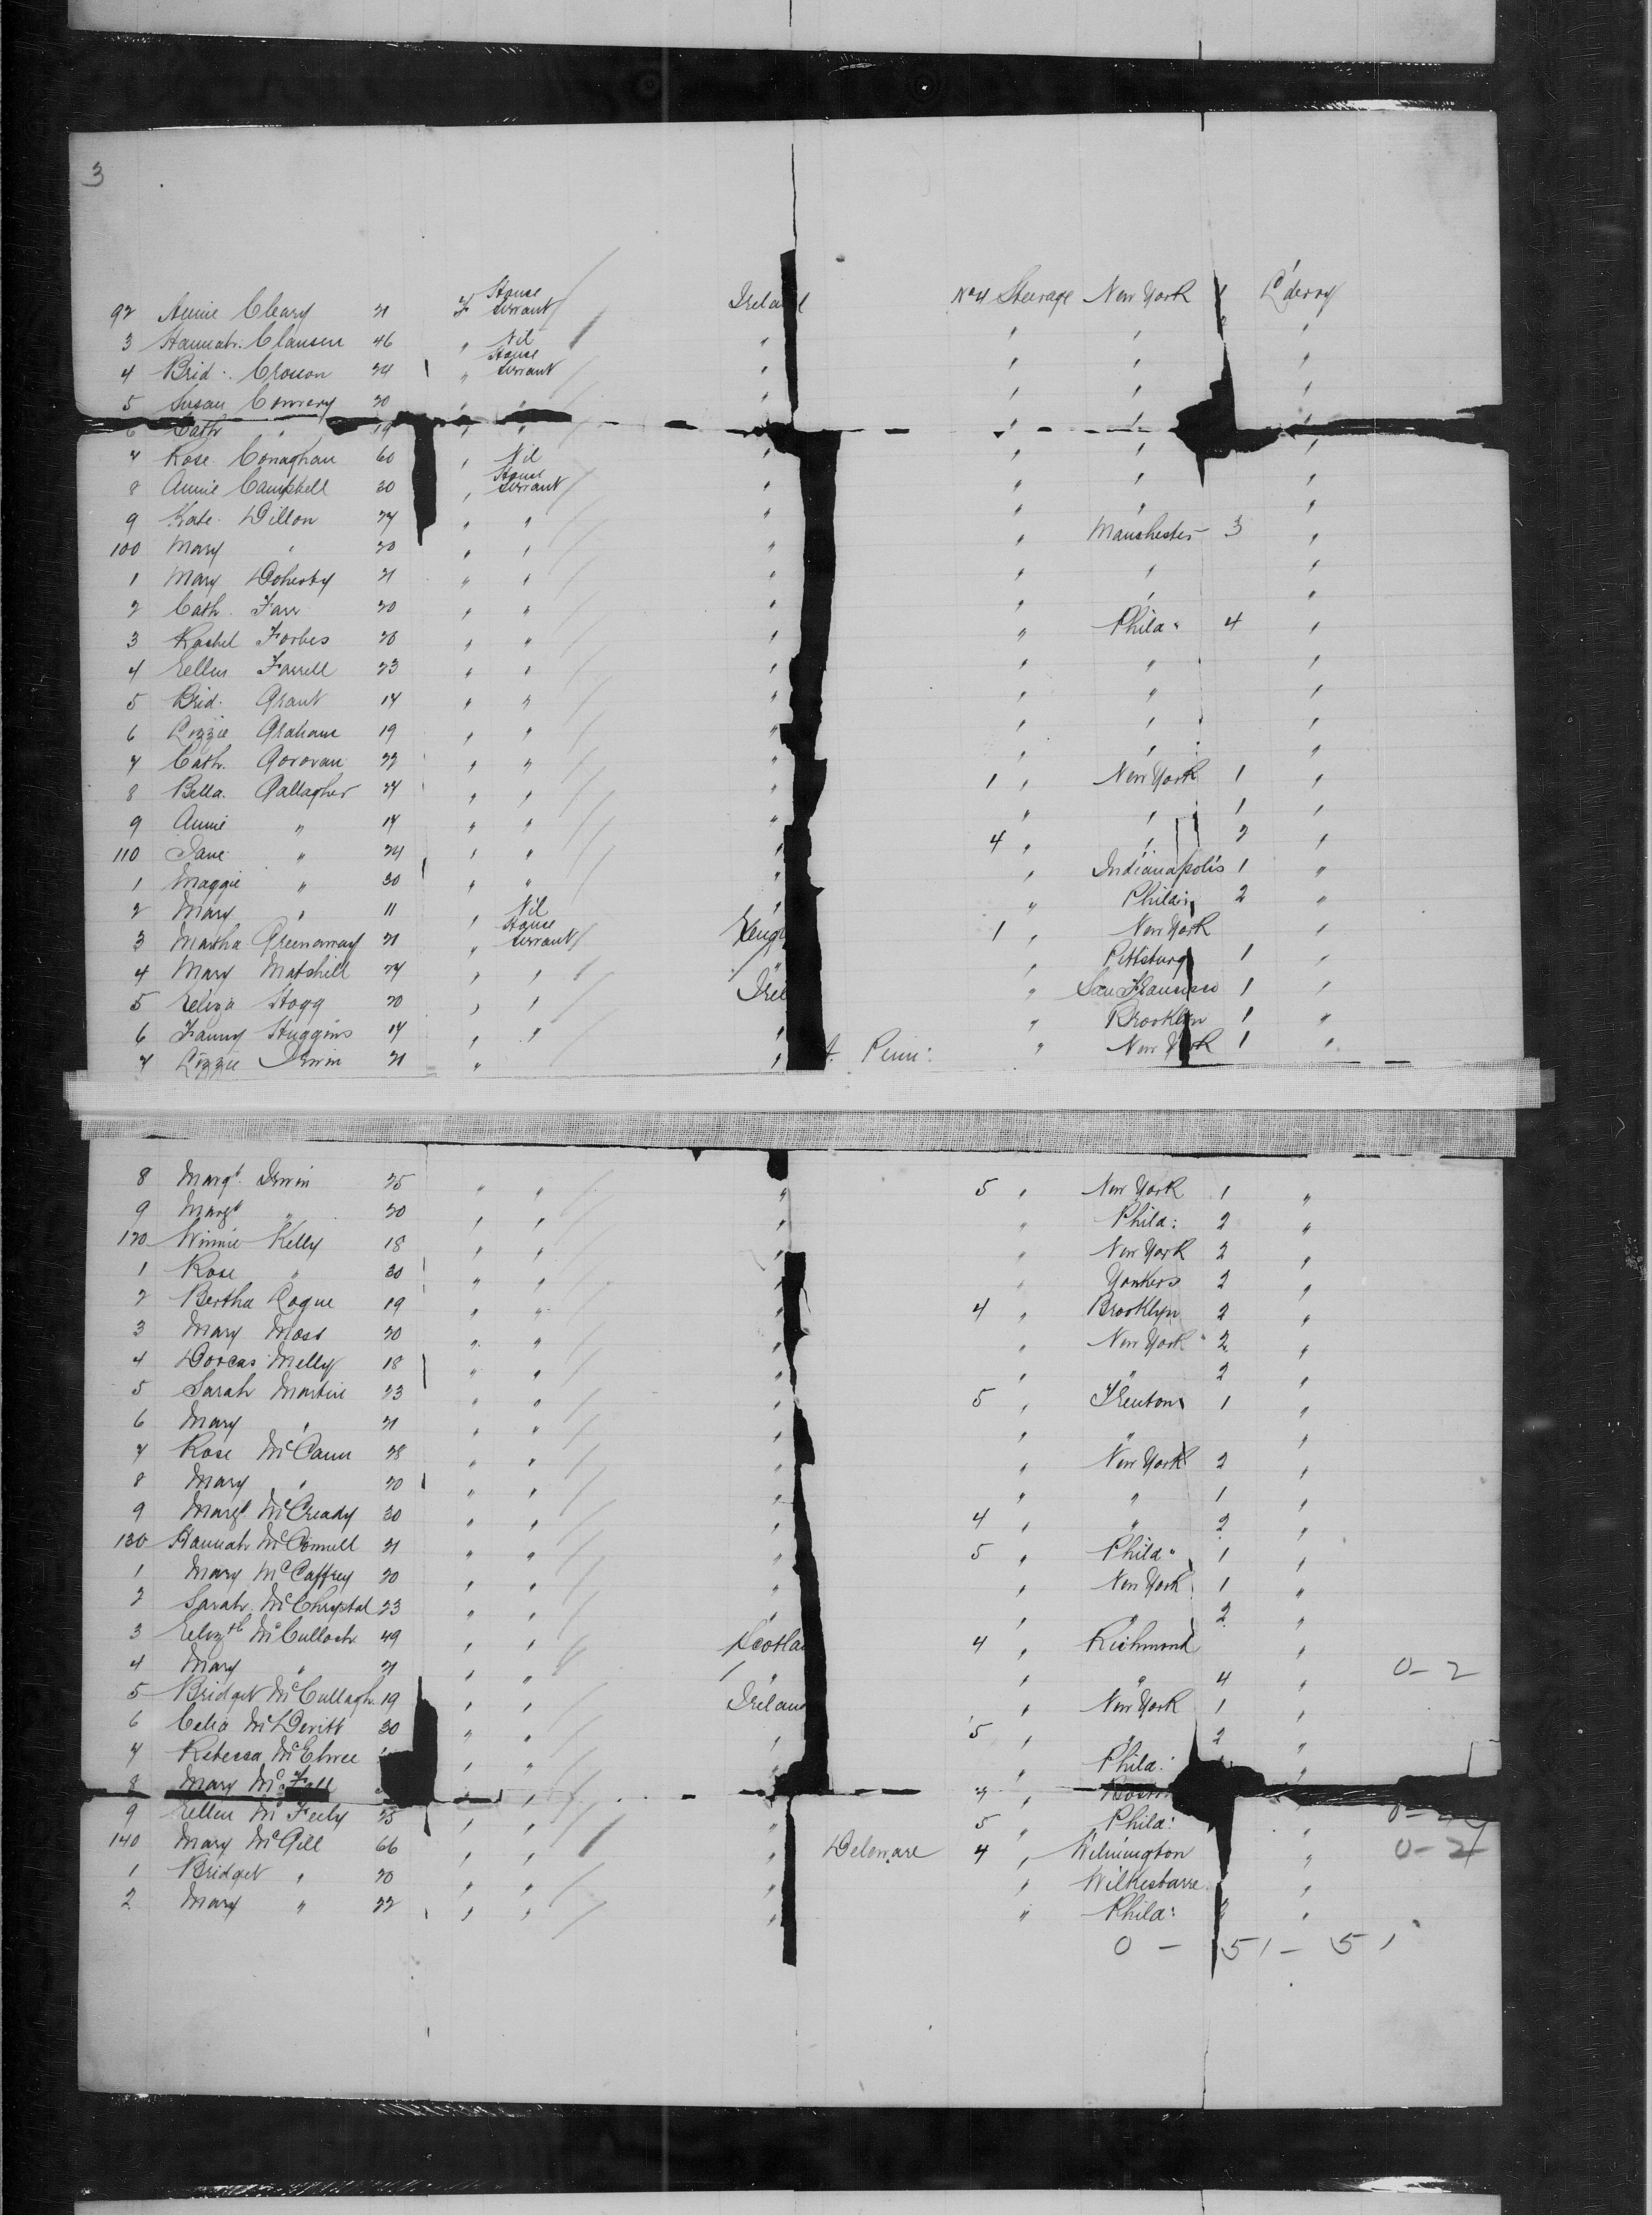 3
92 Annie Cleary 21 F House Servant Ireland No 4 Steerage New York 1 L'derry
3 Hannah Clausen 46 " Nil " " " "
4 Brid. Crosson 24 " House Servant " " " "
5 Susan Conwery 20 " " " " " "
6 Cath " 19 " " " " " "
7 Rose Conaghan 60 " Nil " " " "
8 Annie Campbell 30 " House Servant " " " "
9 Kate Dillon 27 " " " " " "
100 Mary " 20 " " " " Manchester 3 "
1 Mary Doherty 21 " " " " " "
2 Cath. Farr 20 " " " " " "
3 Rachel Forbes 20 " " " " Phila: 4 "
4 Ellen Farrell 23 " " " " " "
5 Brid. Grant 17 " " " " " "
6 Lizzie Graham 19 " " " " " "
7 Cath. Gorovan 22 " " " " " "
8 Bella Gallagher 24 " " " 1 " New York 1 "
9 Annie " 17 " " " " " 1 "
110 Jane " 24 " " " 4 " " 2 "
1 Maggie " 30 " " " " Indianapolis 1 "
2 Mary " 11 " Nil " " Phila: 2 "
3 Martha Greenaway 21 " House Servant Engl 1 " New York "
4 Mary Hatshill 24 " " " " Pittsburg 1 "
5 Eliza Hogg 20 " " Irel " San Francisco 1 "
6 Fanny Huggins 17 " " " " Brooklyn 1 "
7 Lizzie Irwin 21 " " Penn: " New York 1 "
8 Margt. Irwin 25 " " " 5 " New York 1 "
9 Margt " 20 " " " " Phila: 2 "
120 Winnie Kelly 18 " " " " New York 2 "
1 Rose " 30 " " " " Yonkers 2 "
2 Bertha Logue 19 " " " 4 " Brooklyn 2 "
3 Mary Moss 20 " " " " New York 2 "
4 Dorcas Melly 18 " " " " " 2 "
5 Sarah Martin 23 " " " 5 " Trenton 1 "
6 Mary " 21 " " " " " "
7 Rose McCann 28 " " " " New York 2 "
8 Mary " 20 " " " " " 1 "
9 Margt McCready 30 " " " 4 " " 2 "
130 Hannah McConnell 21 " " " 5 " Phila: 1 "
1 Mary McCaffrey 20 " " " " New York 1 "
2 Sarah McChrystal 23 " " " " " 2 "
3 Elizth McCulloch 49 " " Scotla 4 " Richmond "
4 Mary " 21 " " " " " 4 " 0-2
5 Bridget McCullagh 19 " " Ireland " New York 1 "
6 Celia McDevitt 30 " " " 5 " " 2 "
7 Rebecca McElwee " " " " Phila: "
8 Mary McFall " " "
9 Ellen McFeely 25 " " " 5 " Phila: "
140 Mary McGill 66 " " " Deleware 4 " Wilmington " 0-2
1 Bridget " 20 " " " " Wilkesbarre "
2 Mary " 22 " " " " Phila: "
0 - 51 - 51